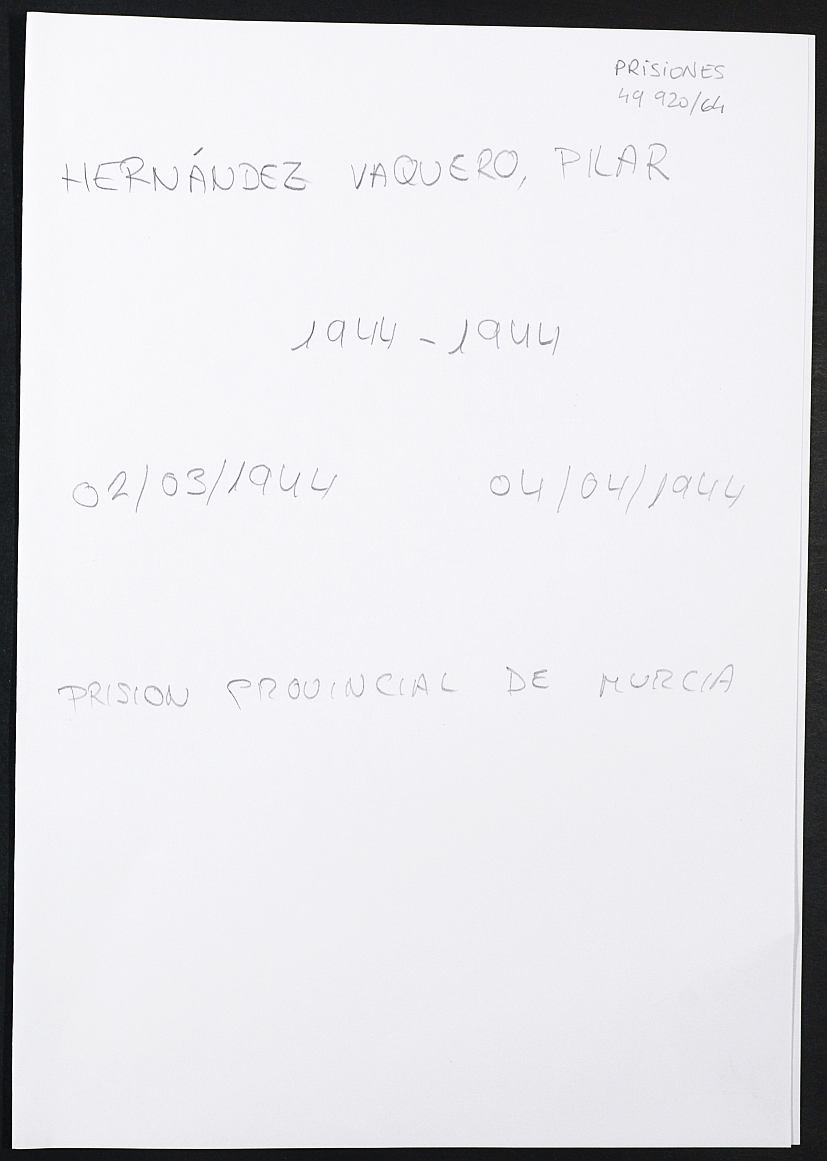 PRISIONES
49 920/64
HERNÁNDEZ VAQUERO, PILAR
1944 - 1944
02/03/1944 04/04/1944
PRISION PROVINCIAL DE MURCIA